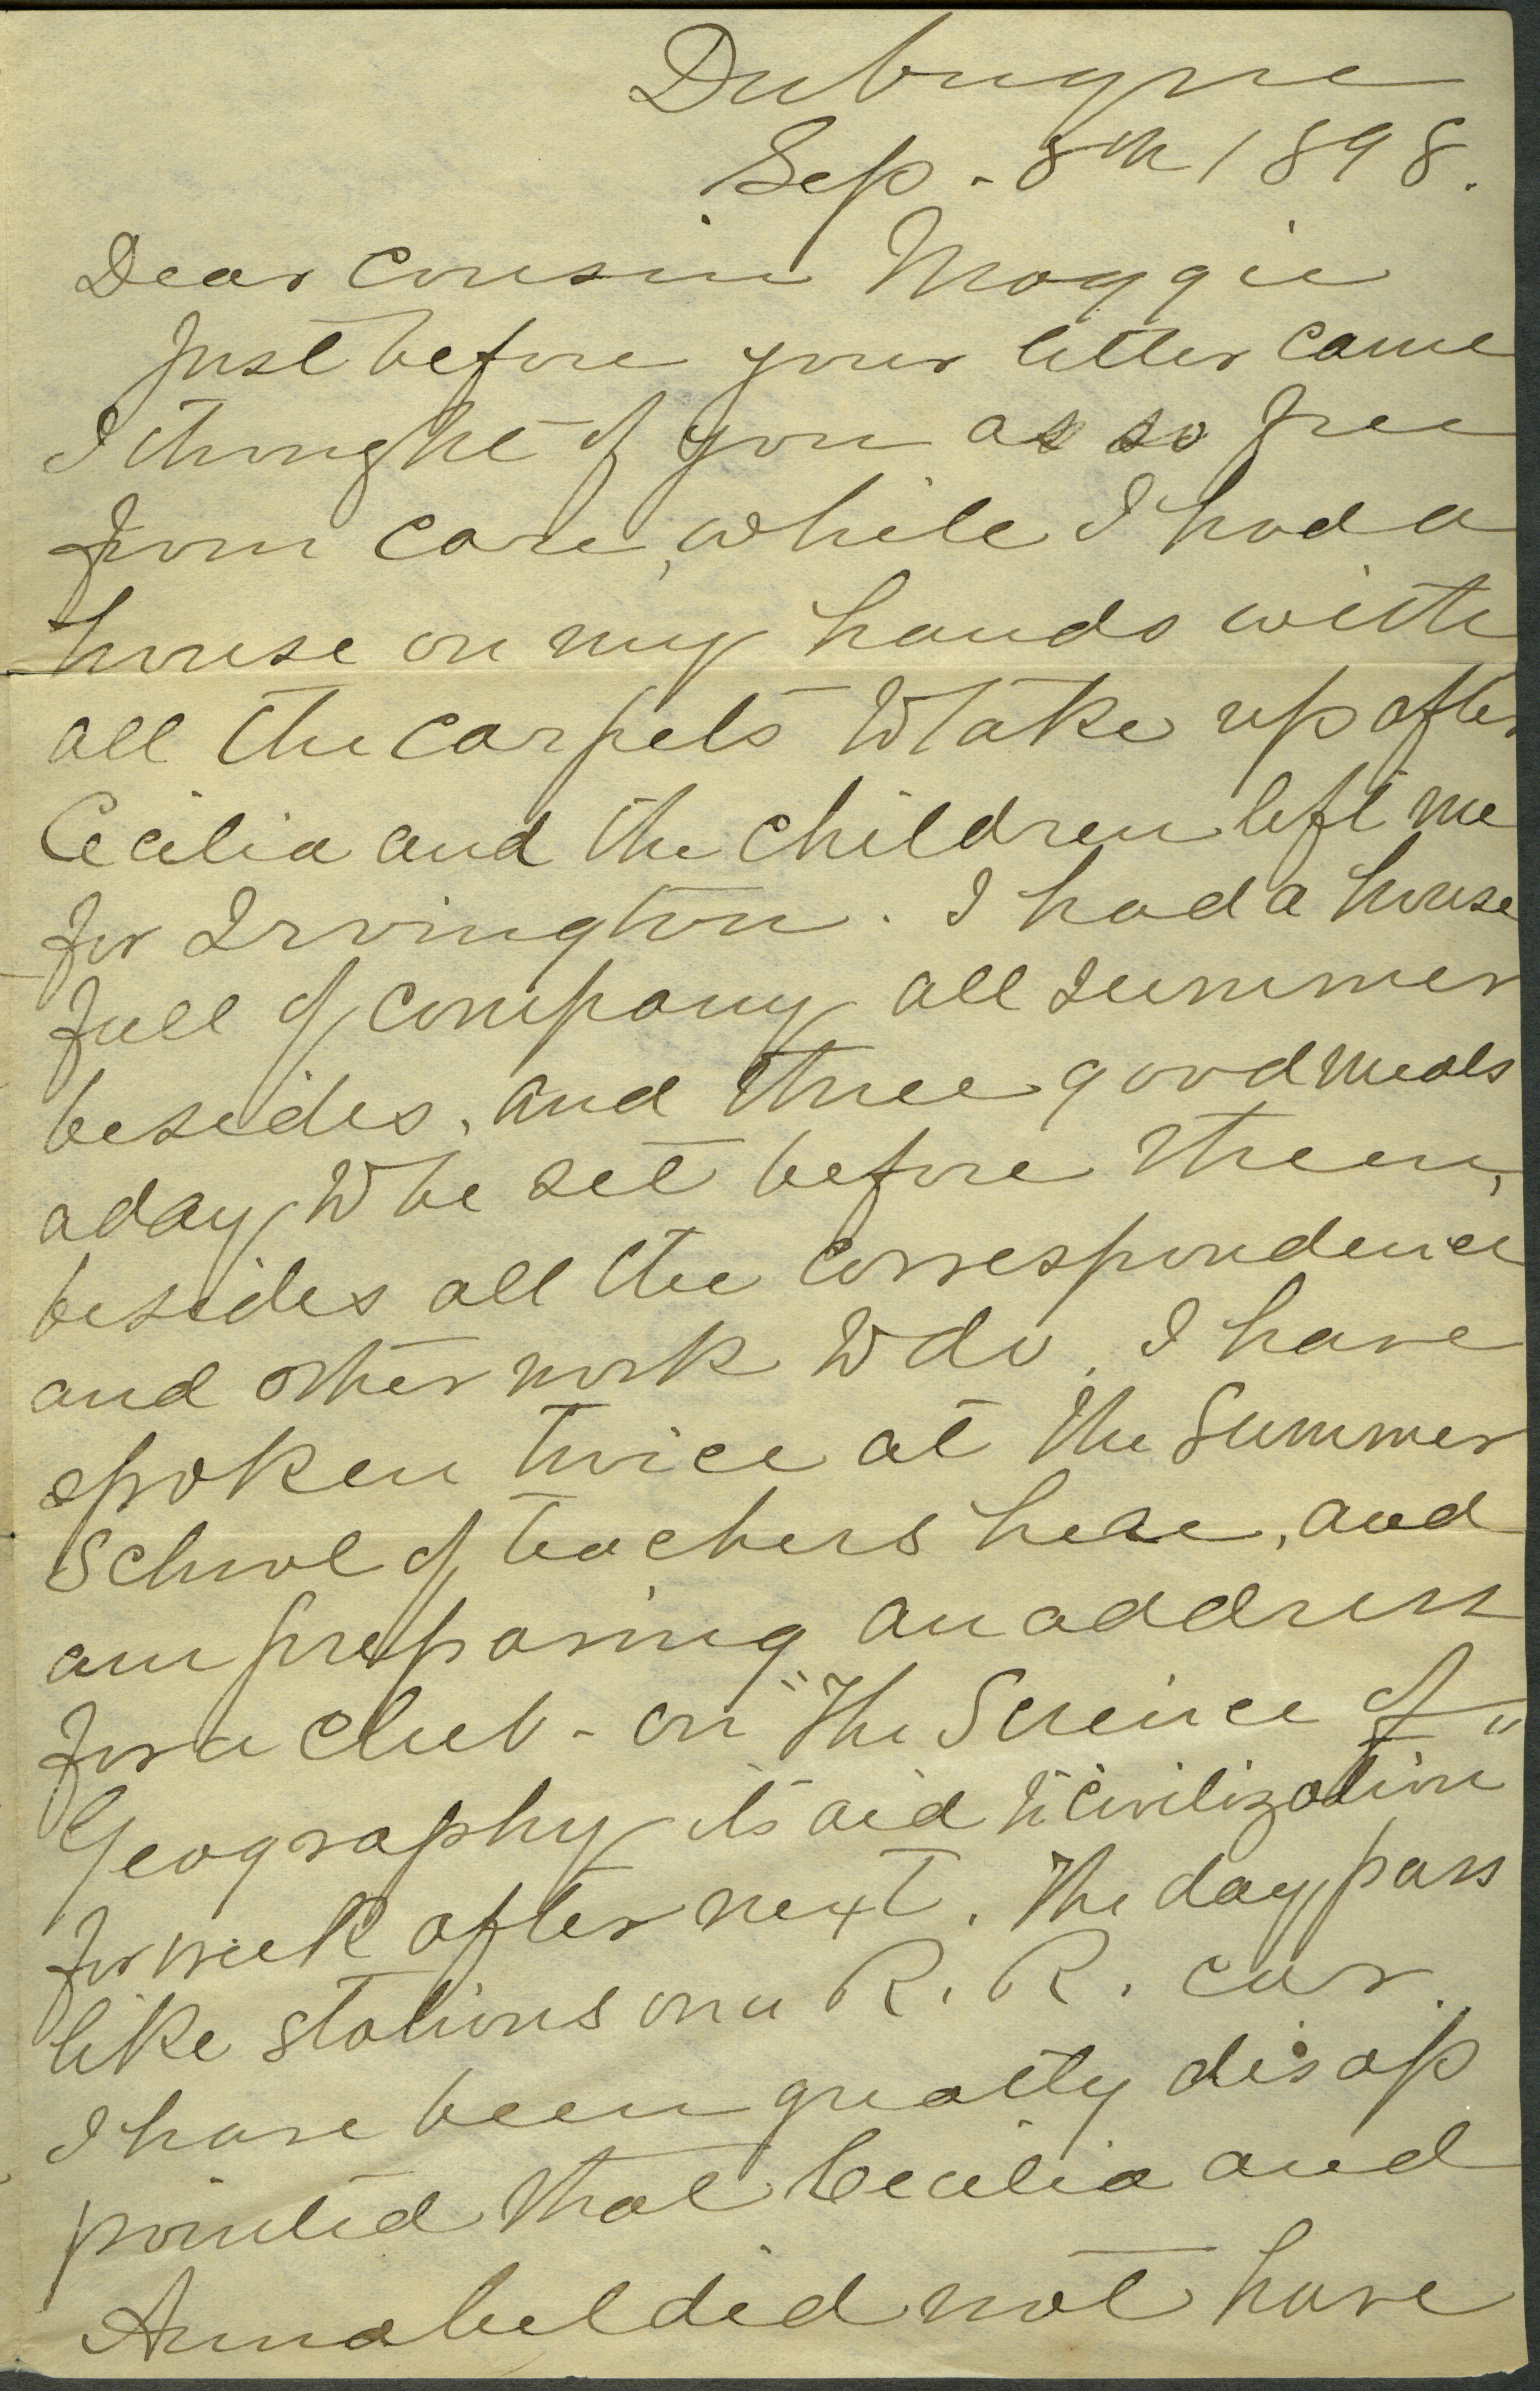 Dubuque
Sep - 8th 1898.
Dear Cousin Maggie
Just before your letter came
I thought of you as so free
from care, while I had a
house on my hands with
all the carpets to take up after
Cecilia and the children left me
for Irvington. I had a house
full of company all summer
besides, and three good meals
a day to be set before them,
besides all the correspondence
and other work to do. I have
spoken twice at the Summer
School of teachers here, and
am preparing an address
for a club - on "The Science of"
Geography its aid to "Civilization
for week after next. The days pass
like stations on a R. R. car.
I have been greatly disap
pointed that Cecilia and
Annabel did not have